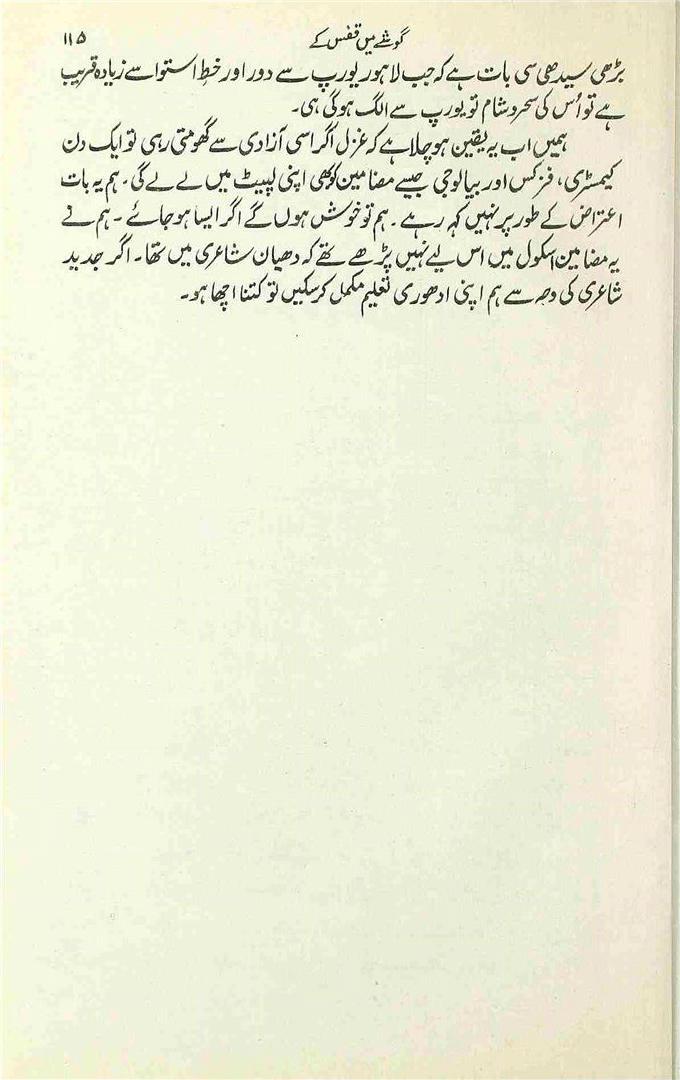 گوشے میں قفس کے ۱۱۵
بڑھی سیدھی سی بات ہے کہ جب لاہور یورپ سے دور اور خطِ استوا سے زیادہ قریب
ہے تو اُس کی سحر و شام تو یورپ سے الگ ہوگی ہی۔
ہمیں اب یہ یقین ہو چلا ہے کہ غزل اگر اسی آزادی سے گھومتی رہی تو ایک دن
کیمسٹری، فزکس اور بیالوجی جیسے مضامین کو بھی اپنی لپیٹ میں لے لے گی۔ ہم یہ بات
اعتراض کے طور پر نہیں کہہ رہے۔ ہم تو خوش ہوں گے اگر ایسا ہو جائے۔ ہم نے
یہ مضامین اسکول میں اس لیے نہیں پڑھے تھے کہ دھیان شاعری میں تھا۔ اگر جدید
شاعری کی وجہ سے ہم اپنی ادھوری تعلیم مکمل کر سکیں تو کتنا اچھا ہو۔